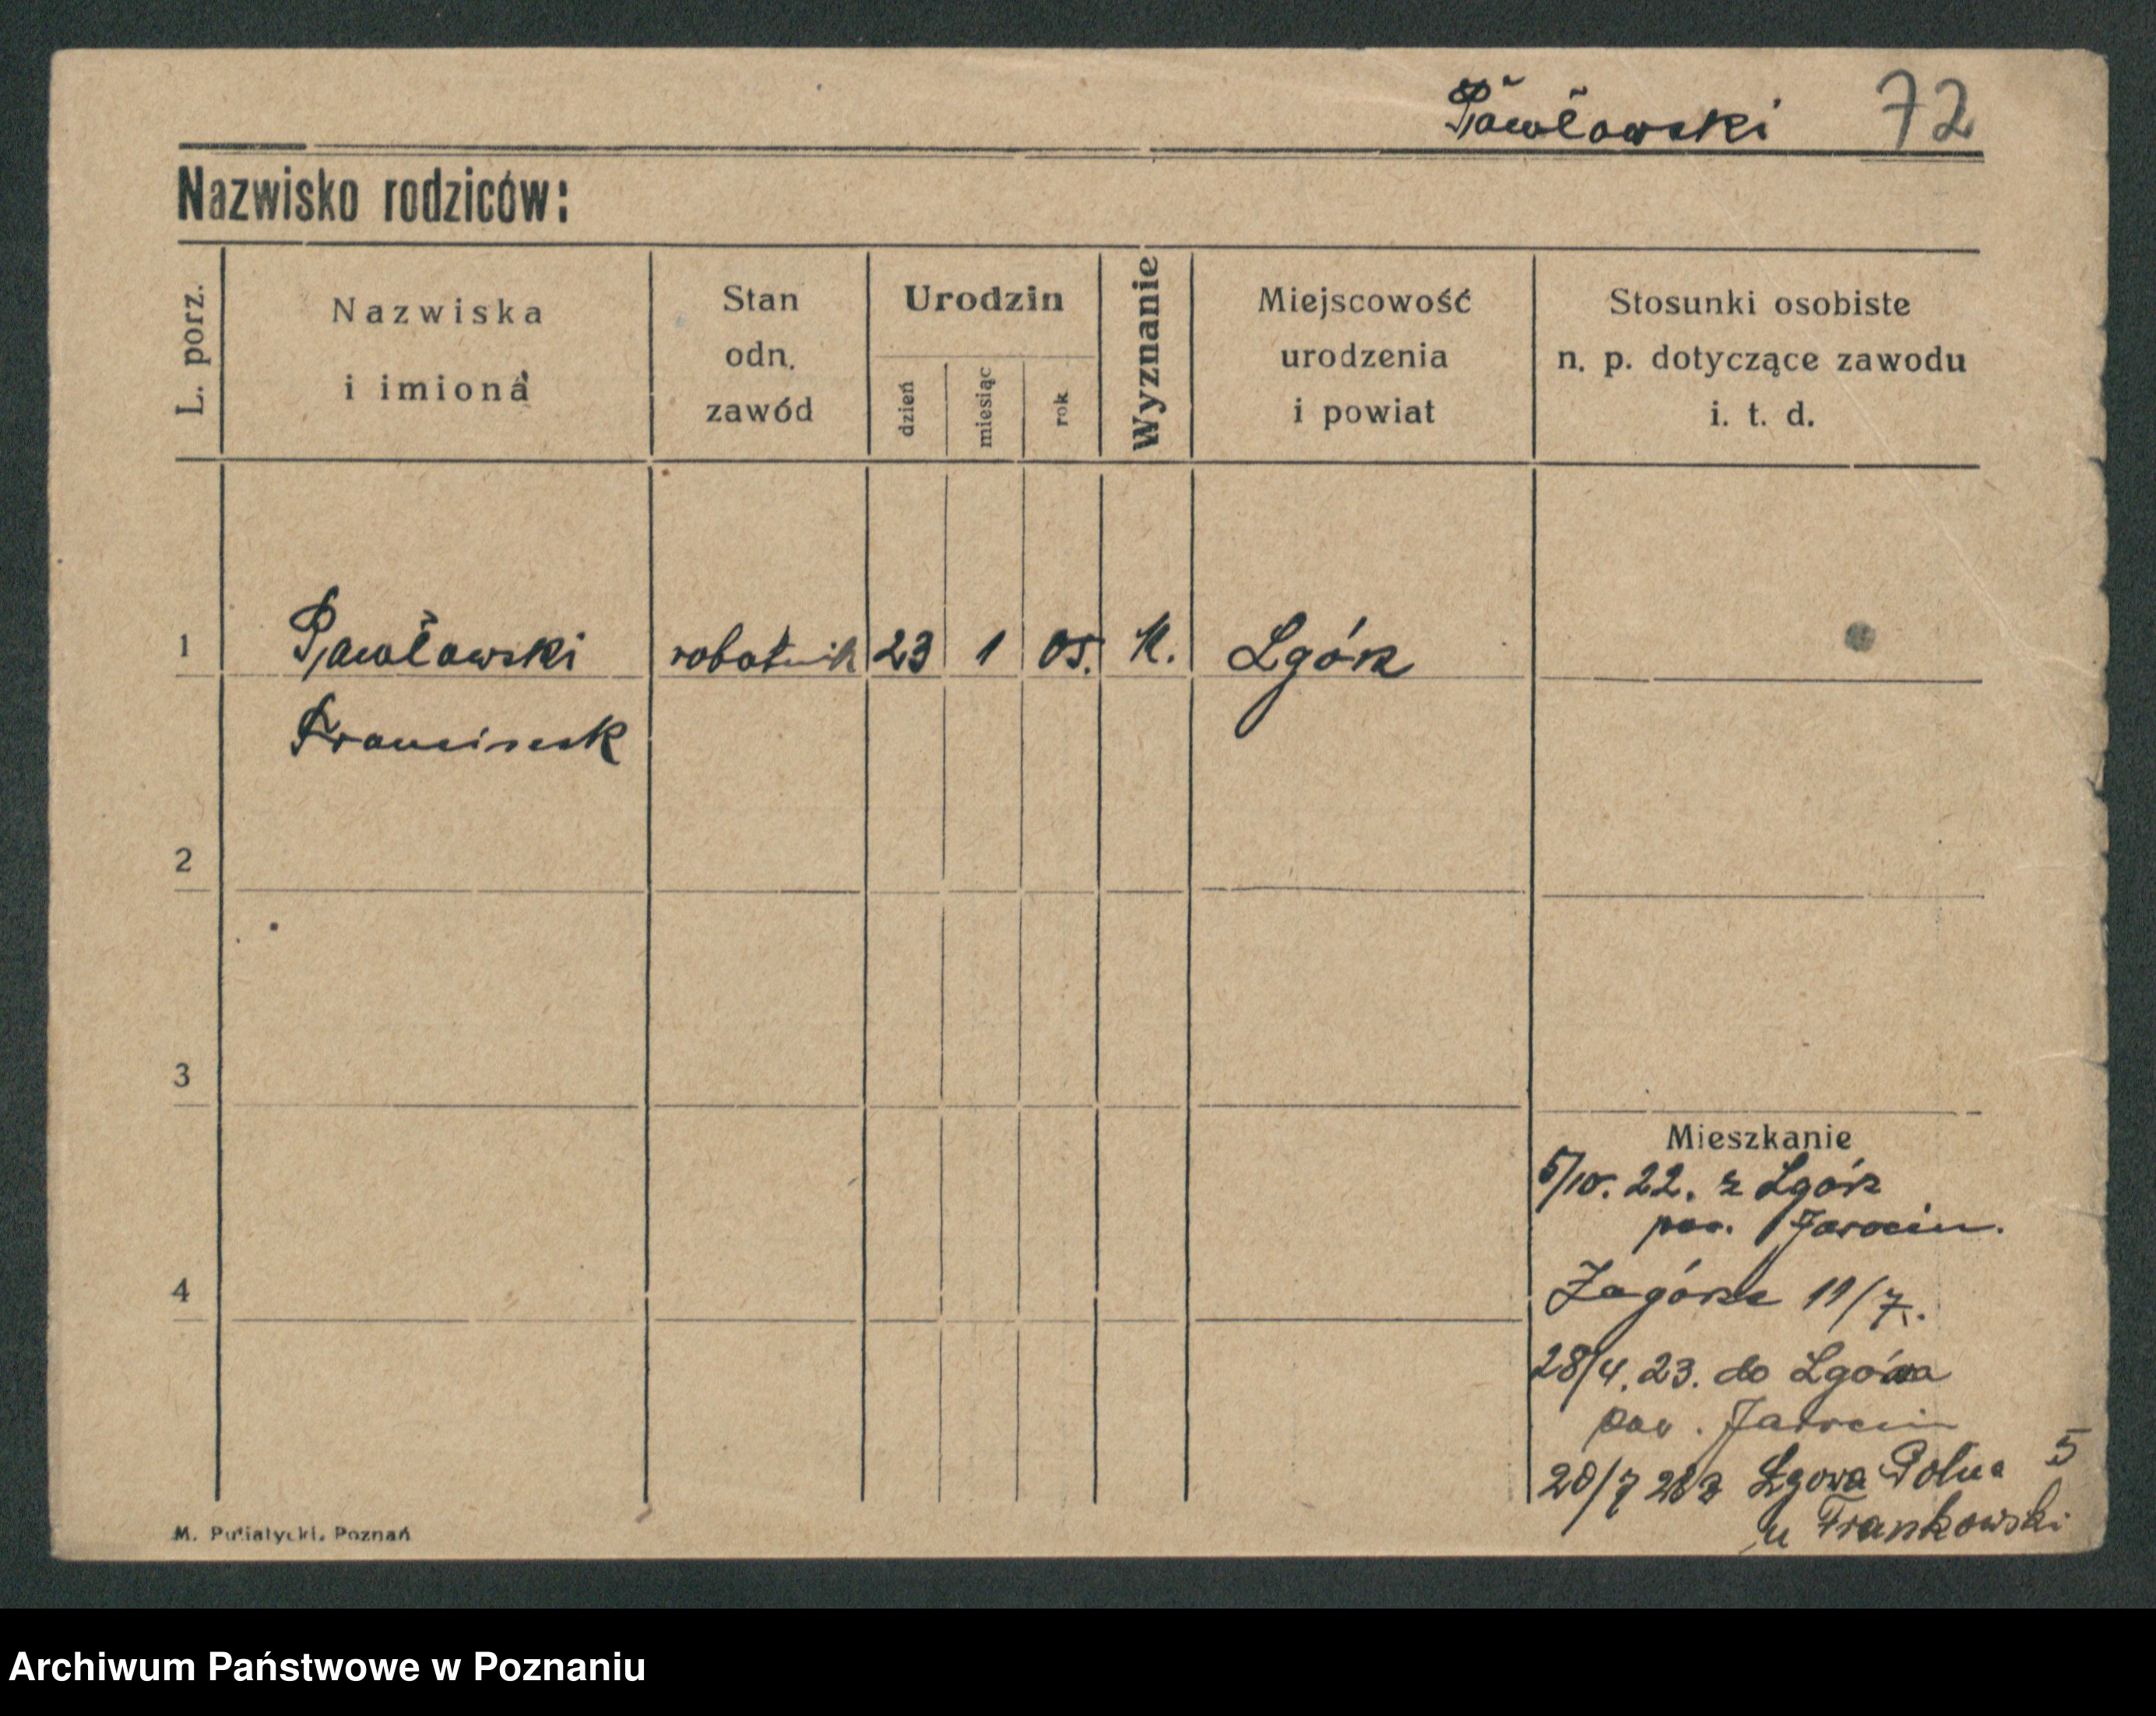 Pawłowski 72
Nazwisko rodziców:
L. porz.
Nazwiska
i imiona
Stan
odn.
zawód
Urodzin
dzień
miesiąc
rok
Wyznanie
Miejscowość
urodzenia
i powiat
Stosunki osobiste
n. p. dotyczące zawodu
i. t. d.
1 Pawłowski robotnik 23 1 05. K. Lgów
Franciszek
2
3
4
Mieszkanie
5/10. 22. z Lgów
pow. Jarocin.
Zagórze 11/7.
28/4. 23. do Lgowa
pow. Jarocin
20/7 Lgowa Polna 5
u Frankowski
M. Putiatycki, Poznań
Archiwum Państwowe w Poznaniu